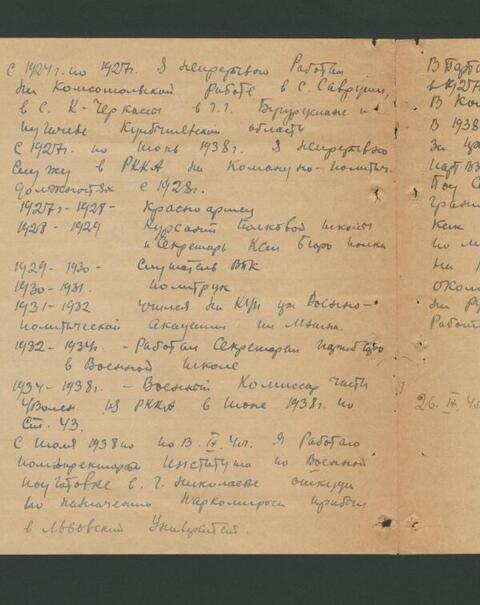 С 1924г. по 1927г. Я непрерывно Работал
на Комсомольской Работе в С. Саврушн,
в С. К-Черкассы в г.г. Бугуруслане и
Куйбышевской области
С 1927г. по июнь 1938г. Я непрерывно
служу в РККА на Командно-политич.
должностях с 1928г.
1927г - 1928 - Красноармеец
1928 - 1929 Курсант Полковой школы
и Секретарь Ксм бюро полка
1929 - 1930 - Слушатель ВПК
1930 - 1931. политрук
1931 - 1932 учился на Кур Военно-
политической Академии
1932 - 1934г. - Работал Секретарем партбюро
в Военной школе
1934 - 1938г. - Военный Комиссар части
Уволен из РККА в июне 1938г. по
Ст. 43.
С июля 1938 по 13. IV 41г. Я Работаю
пом. директора Института по Военной
подготовке в г. Николаеве откуда
по назначению Наркомпроса прибыл
в Львовский Университет.
В Парти
в 1927
В Ком
В 1938
за
парт вз
Поу С
гран
Как
по м
на
около
на Ру
Работ
26. IV 41